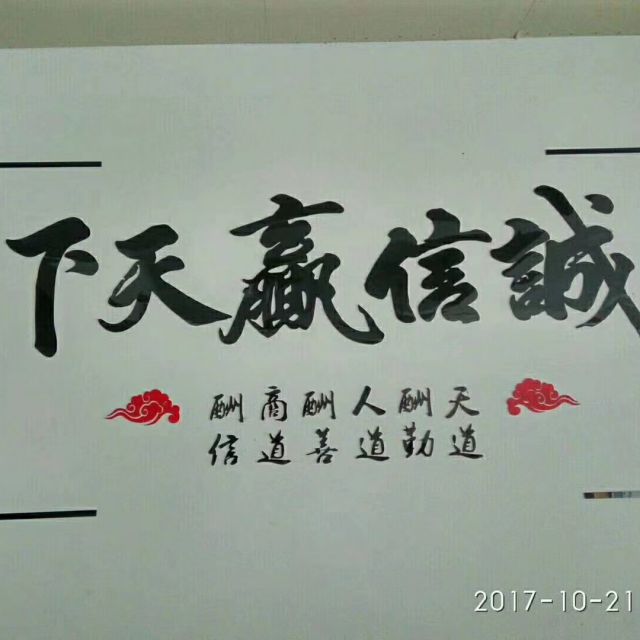 誠信贏天下
天道
酬勤
人道
酬善
商道
酬信
2017-10-21